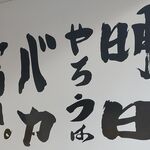 明日
やろうは
バカ